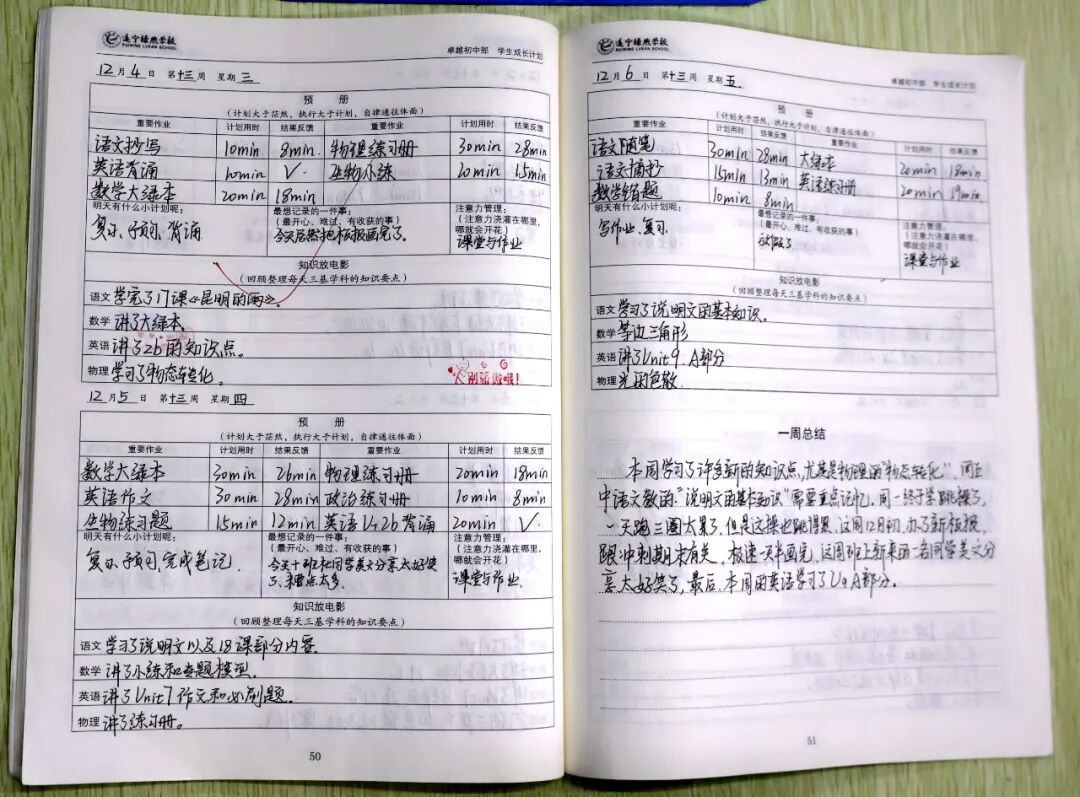 遂宁绿然学校
SUINING LVRAN SCHOOL
卓越初中部 学生成长计划
12月4日 第十三周 星期三
预 册
(计划大于茫然,执行大于计划,自律通往体面)
重要作业 计划用时 结果反馈 重要作业 计划用时 结果反馈
语文抄写 10min 8min 物理练习册 30min 28min
英语背诵 10min ✓ 生物小练 20min 15min
数学大绿本 20min 18min
明天有什么小计划呢:
复习、预习、背诵
最想记录的一件事:
(最开心、难过、有收获的事)
今天居然把板报画完了。
注意力管理:
(注意力浇灌在哪里,
哪就会开花)
课堂与作业
知识放电影
(回顾整理每天三基学科的知识要点)
语文 学完了17课《昆明的雨》。
数学 讲了大绿本。
英语 讲了2b的知识点。
物理 学习了物态变化。
12月5日 第十三周 星期四
预 册
(计划大于茫然,执行大于计划,自律通往体面)
重要作业 计划用时 结果反馈 重要作业 计划用时 结果反馈
数学大绿本 30min 26min 物理练习册 20min 18min
英语作文 30min 28min 政治练习册 10min 8min
生物练习题 15min 12min 英语U72b背诵 20min ✓
明天有什么小计划呢:
复习、预习、完成笔记.
最想记录的一件事:
(最开心、难过、有收获的事)
今天十班杜同学美文分享太好笑
了,笑点太多。
注意力管理:
(注意力浇灌在哪里,
哪就会开花)
课堂与作业.
知识放电影
(回顾整理每天三基学科的知识要点)
语文 学习了说明文以及18课部分内容.
数学 讲了小练和专题模型.
英语 讲了Unit7作文和必刷题.
物理 讲了练习册。
50
遂宁绿然学校
SUINING LVRAN SCHOOL
卓越初中部 学生成长计划
12月6日 第十三周 星期五
预 册
(计划大于茫然,执行大于计划,自律通往体面)
重要作业 计划用时 结果反馈 重要作业 计划用时 结果反馈
语文随笔 30min 28min 大绿本 20min 18min
语文摘抄 15min 13min 英语练习册 20min 19min
数学错题 10min 8min
明天有什么小计划呢:
写作业、复习.
最想记录的一件事:
(最开心、难过、有收获的事)
放假了
注意力管理:
(注意力浇灌在哪里,
哪就会开花)
课堂与作业
知识放电影
(回顾整理每天三基学科的知识要点)
语文 学习了说明文的基本知识.
数学 等边三角形
英语 讲了Unit9.A部分
物理 光的色散
一周总结
本周学习了许多新的知识点,尤其是物理的"物态变化",周五
中语文教的"说明文的基本知识"需要重点记忆,周一终于学跳操了,
一天跑三圈太累了,但是这操也跳得累,这周12月初,办了新板报,
跟冲刺期末有关,极速一天半画完,这周班上新来的一名同学美文分
享太好笑了,最后,本周的英语学习了U9A部分.
51